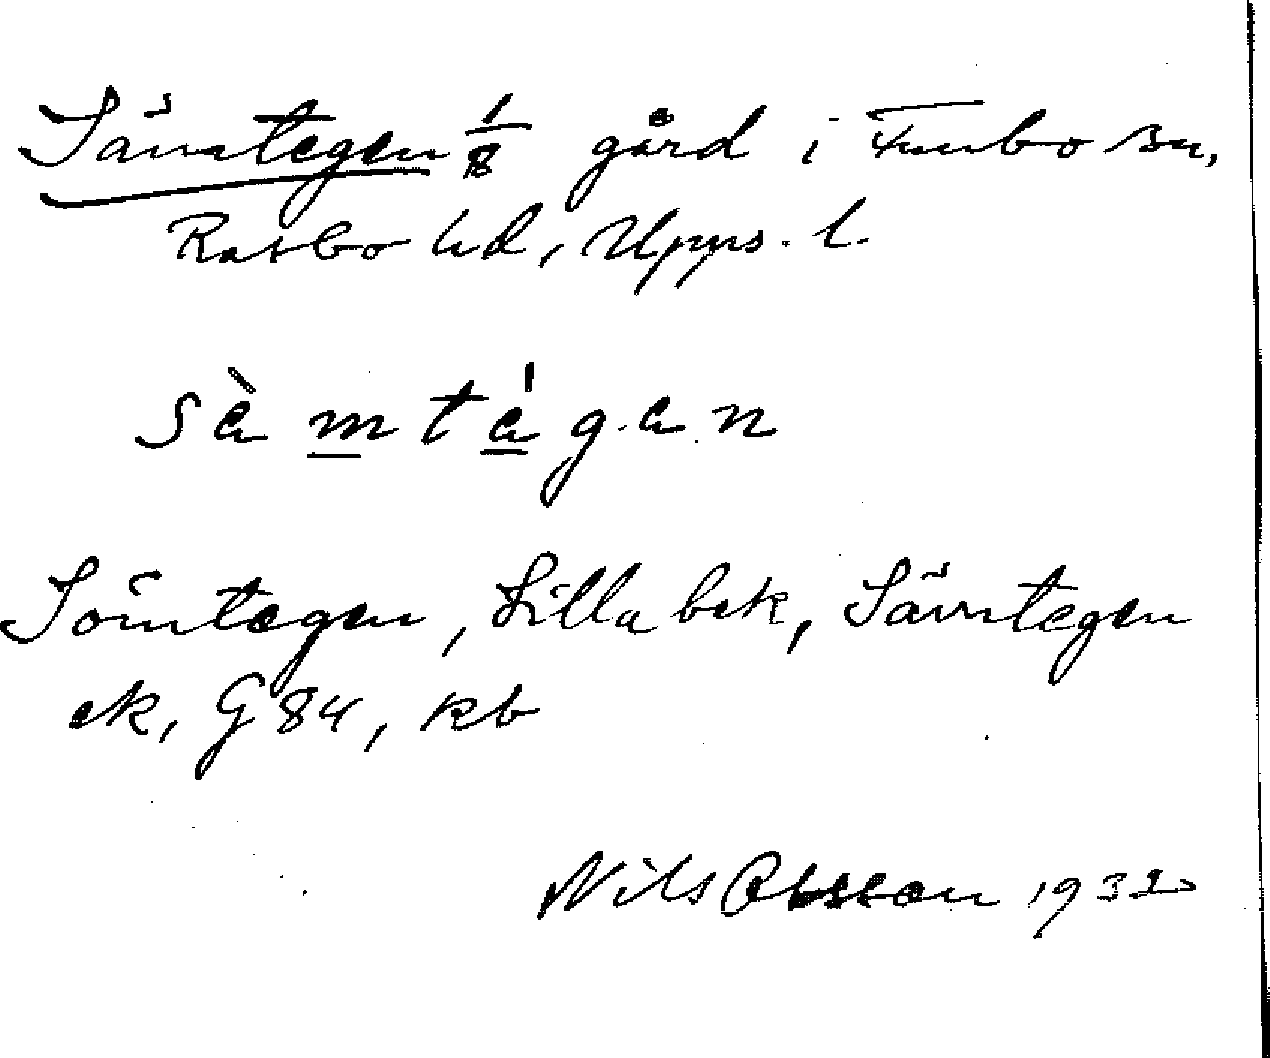 Sämtegen 1/8 gård i Funbo sn,
Rasbo hd, Upps. l.
sàmtégen
Sömtegen, Lilla bek, Sämtegen
ek, G 84, kb
Nils Olsson 1932